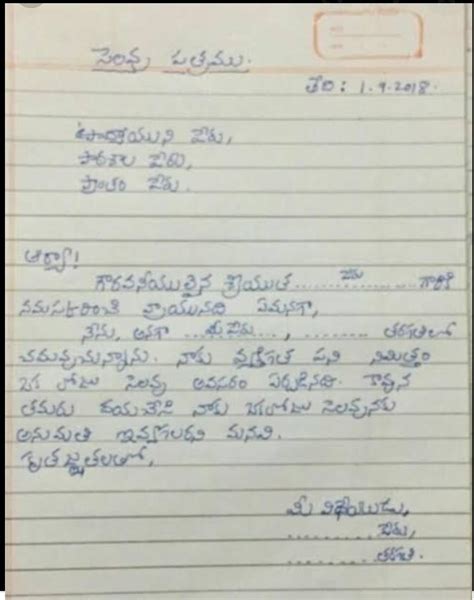 సెలవు పత్రము.
తేది : 1.9.2018.
ఉపాధ్యాయుని పేరు,
పాఠశాల పేరు,
ప్రాంతం పేరు.
ఆర్యా!
గౌరవనీయులైన శ్రీయుత ......పేరు...... గారికి
నమస్కరించి వ్రాయునది ఏమనగా,
నేను, అనగా ...మీ పేరు..., ........ తరగతిలో
చదువుచున్నాను. నాకు వ్యక్తిగత పని నిమిత్తం
ఒక రోజు సెలవు అవసరం ఏర్పడినది. కావున
తమరు దయచేసి నాకు ఒకరోజు సెలవునకు
అనుమతి ఇవ్వగలరని మనవి.
కృతజ్ఞతలతో,
మీ విధేయుడు,
......... పేరు,
......... తరగతి.